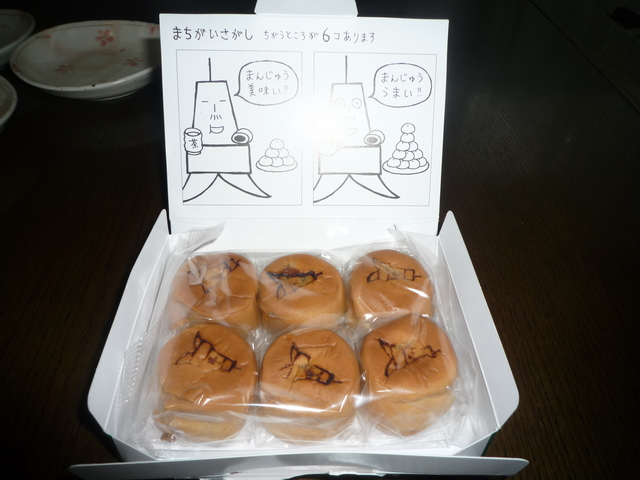 まちがいさがし ちがうところが6コあります
まんじゅう
美味い!!
茶
まんじゅう
うまい!!